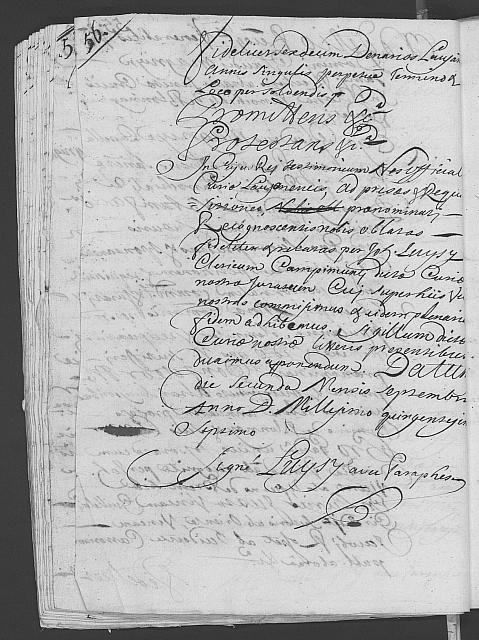 5 56.
fideliter sexdecim Denarios Lausan
Annis singulis perpetue Termino &
Loco persolvendis p
Promittens &c
Protestans &c
In Cujus Rej testimonium Nos Official
Curiæ Lausanensis, ad præces & Requi
sitiones, prænominati
Recognoscentis nobis oblatas
fideliter & relatas per Luysy
Clericum dictæ Curiæ
nostræ Juratum Cuj super hiis Vi
nostras commisimus & eidem plenariam
fidem adhibemus. Sigillum dictæ
Curiæ nostræ Litteris præsentibus
duximus apponendum Datum
die secunda Mensis septembris
Anno D. Millesimo quingentesim
septimo
Signé Luysy avec Paraphes